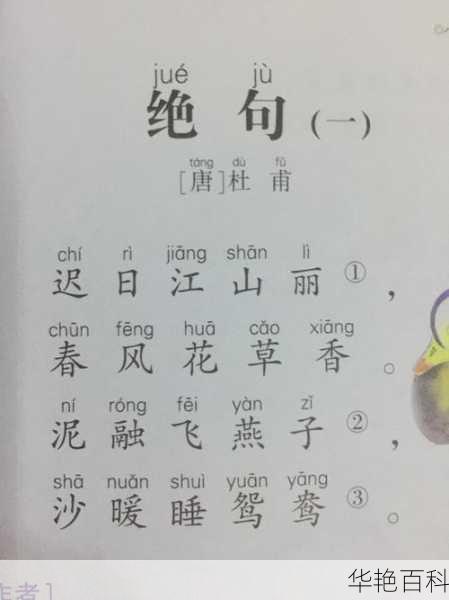 jué jù
绝 句(一)
táng dù fǔ
[唐]杜 甫
chí rì jiāng shān lì
迟 日 江 山 丽①,
chūn fēng huā cǎo xiāng
春 风 花 草 香。
ní róng fēi yàn zǐ
泥 融 飞 燕 子②,
shā nuǎn shuì yuān yāng
沙 暖 睡 鸳 鸯③。
者]
华艳百科